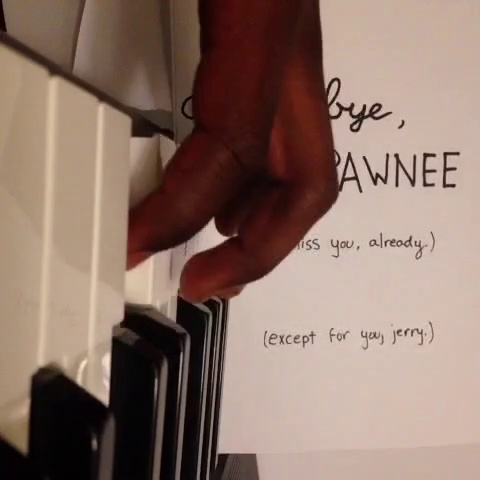 bye,
PAWNEE
miss you, already.)
(except for you, jerry.)